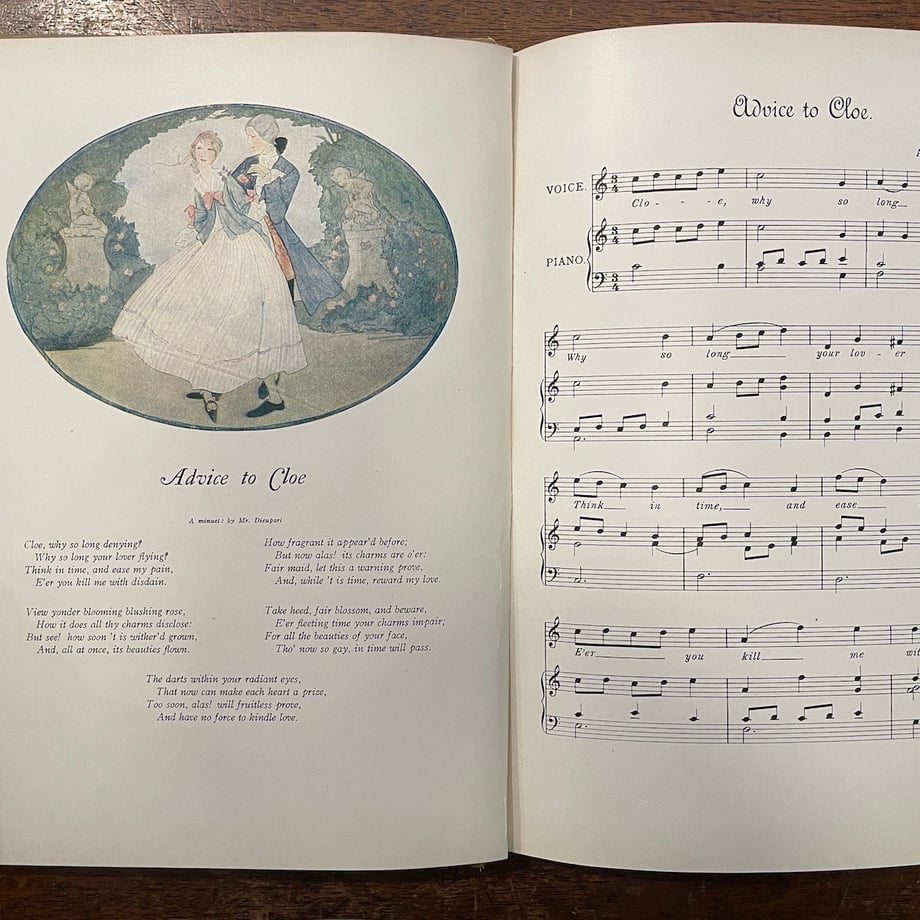 Advice to Cloe
A minuet: by Mr. Dieupart
Cloe, why so long denying?
Why so long your lover flying?
Think in time, and ease my pain,
E'er you kill me with disdain.
View yonder blooming blushing rose,
How it does all thy charms disclose:
But see! how soon 't is wither'd grown,
And, all at once, its beauties flown.
How fragrant it appear'd before;
But now alas! its charms are o'er:
Fair maid, let this a warning prove,
And, while 't is time, reward my love.
Take heed, fair blossom, and beware,
E'er fleeting time your charms impair;
For all the beauties of your face,
Tho' now so gay, in time will pass.
The darts within your radiant eyes,
That now can make each heart a prize,
Too soon, alas! will fruitless prove,
And have no force to kindle love.
Advice to Cloe.
VOICE.
Clo - - - e, why so long
PIANO.
Why so long your lov - er
Think in time, and ease
E'er you kill me wit